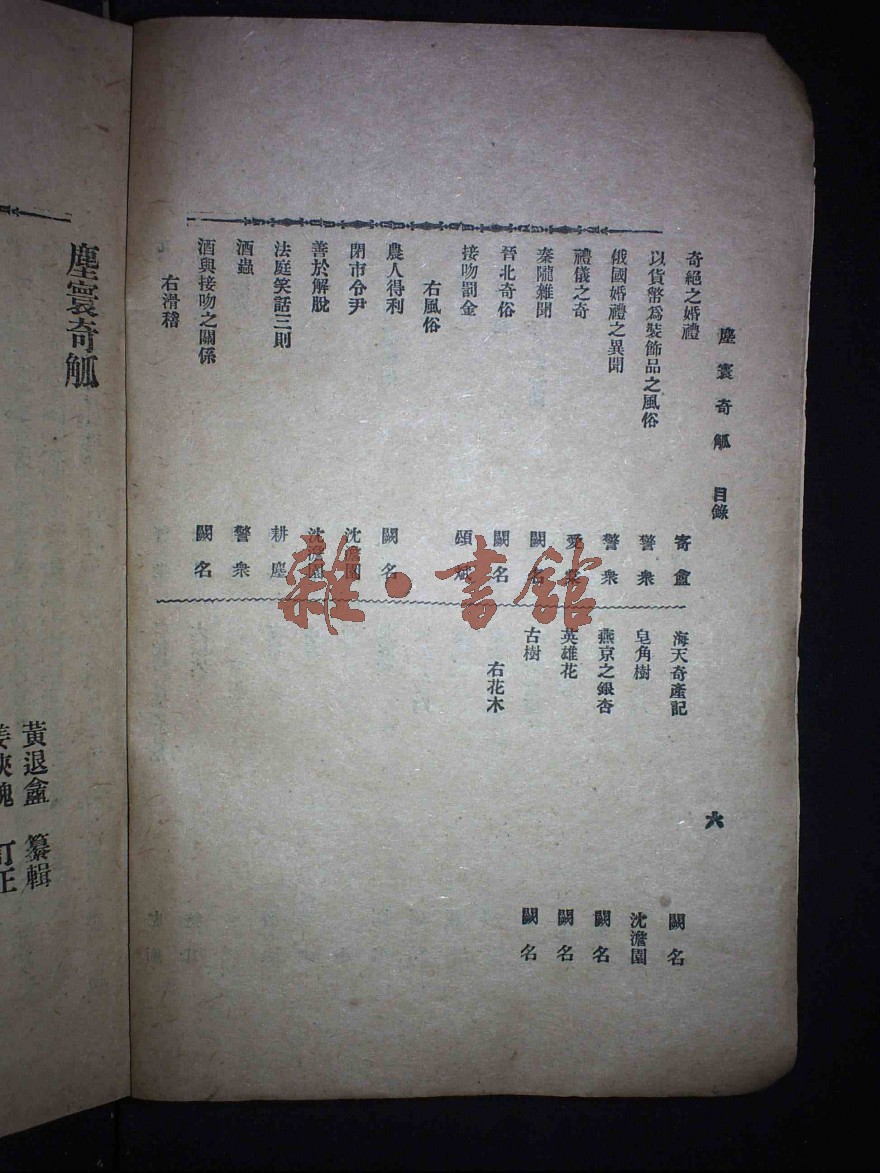 塵寰奇觚 目錄
六
奇絕之婚禮 寄盦
以貨幣爲裝飾品之風俗 警衆
俄國婚禮之異聞 警衆
禮儀之奇 愛衆
秦隴雜聞 闕名
晉北奇俗 闕名
接吻罰金 碩斌
右風俗
農人得利 闕名
閉市令尹 沈澹園
善於解脫 沈澹園
法庭笑話三則 耕塵
酒蟲 警衆
酒與接吻之關係 闕名
右滑稽
海天奇產記 闕名
皂角樹 沈澹園
燕京之銀杏 闕名
英雄花 闕名
古樹 闕名
右花木
雜·書館
塵寰奇觚
黃退盦 纂輯
姜俠魂 訂正